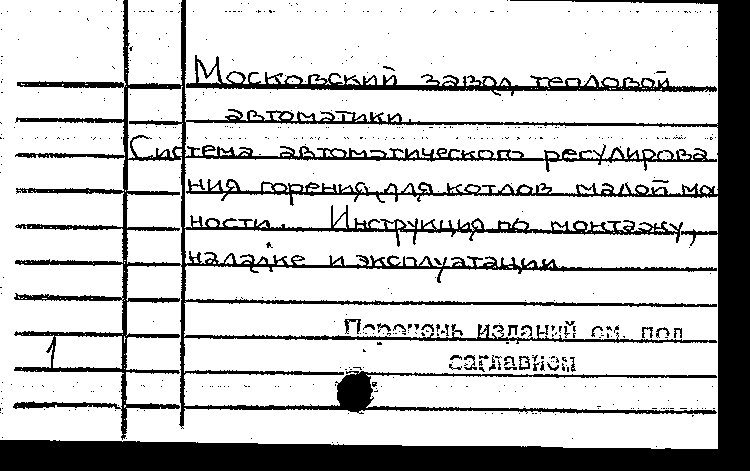 Московский завод тепловой
автоматики.
Система автоматического регулирова
ния горения для котлов малой мо
ности. Инструкция по монтажу,
наладке и эксплуатации
Перечень изданий см. под
заглавием
1